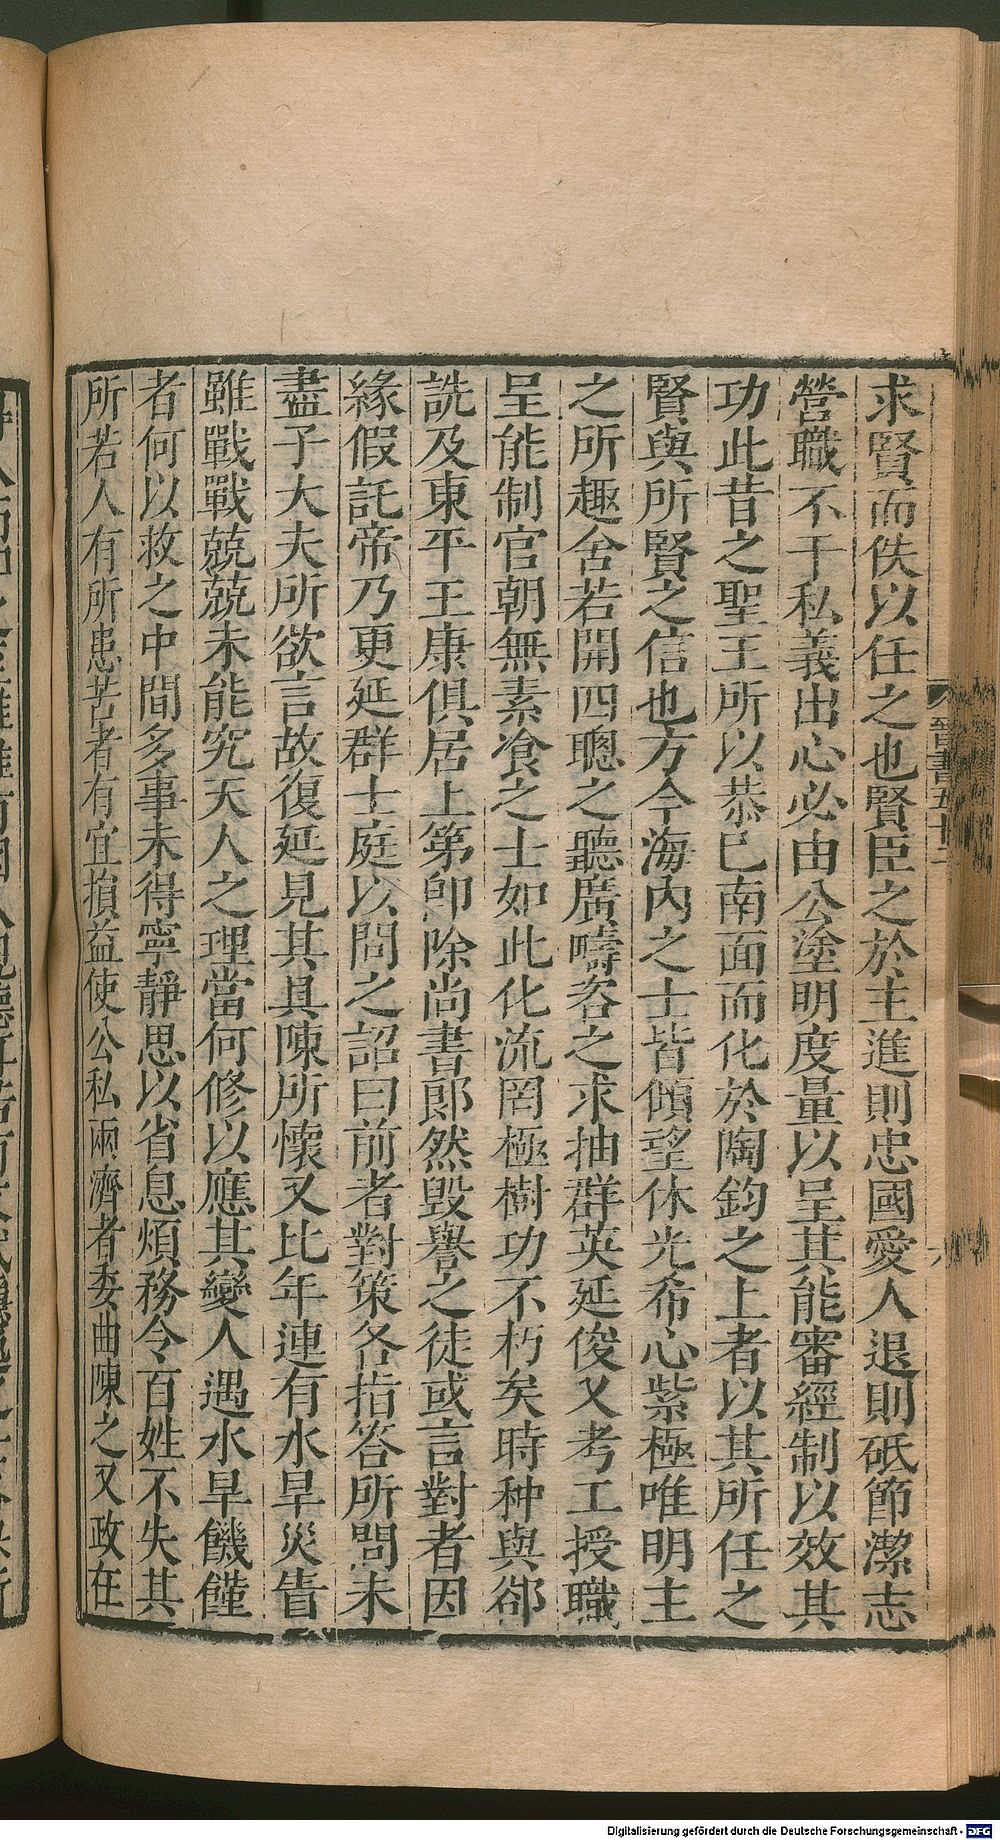 求賢而佚以任之也賢臣之於主進則忠國愛人退則砥節潔志
營職不干私義出心必由公塗明度量以呈其能審經制以效其
功此昔之聖王所以恭已南面而化於陶鈞之上者以其所任之
賢與所賢之信也方今海內之士皆傾望休光希心紫極唯明主
之所趣舍若開四聰之聽廣疇咨之求抽群英延俊乂考工授職
呈能制官朝無素飡之士如此化流罔極樹功不朽矣時种與郤
詵及東平王康俱居上第卽除尚書郞然毀譽之徒或言對者因
緣假託帝乃更延群士庭以問之詔曰前者對策各指答所問未
盡子大夫所欲言故復延見其具陳所懷又比年連有水旱災眚
雖戰戰兢兢未能究天人之理當何修以應其變人遇水旱饑饉
者何以救之中間多事未得寧靜思以省息煩務令百姓不失其
所若人有所患苦者有宜損益使公私兩濟者委曲陳之又政在
晉書五十二
Digitalisierung gefördert durch die Deutsche Forschungsgemeinschaft - DFG